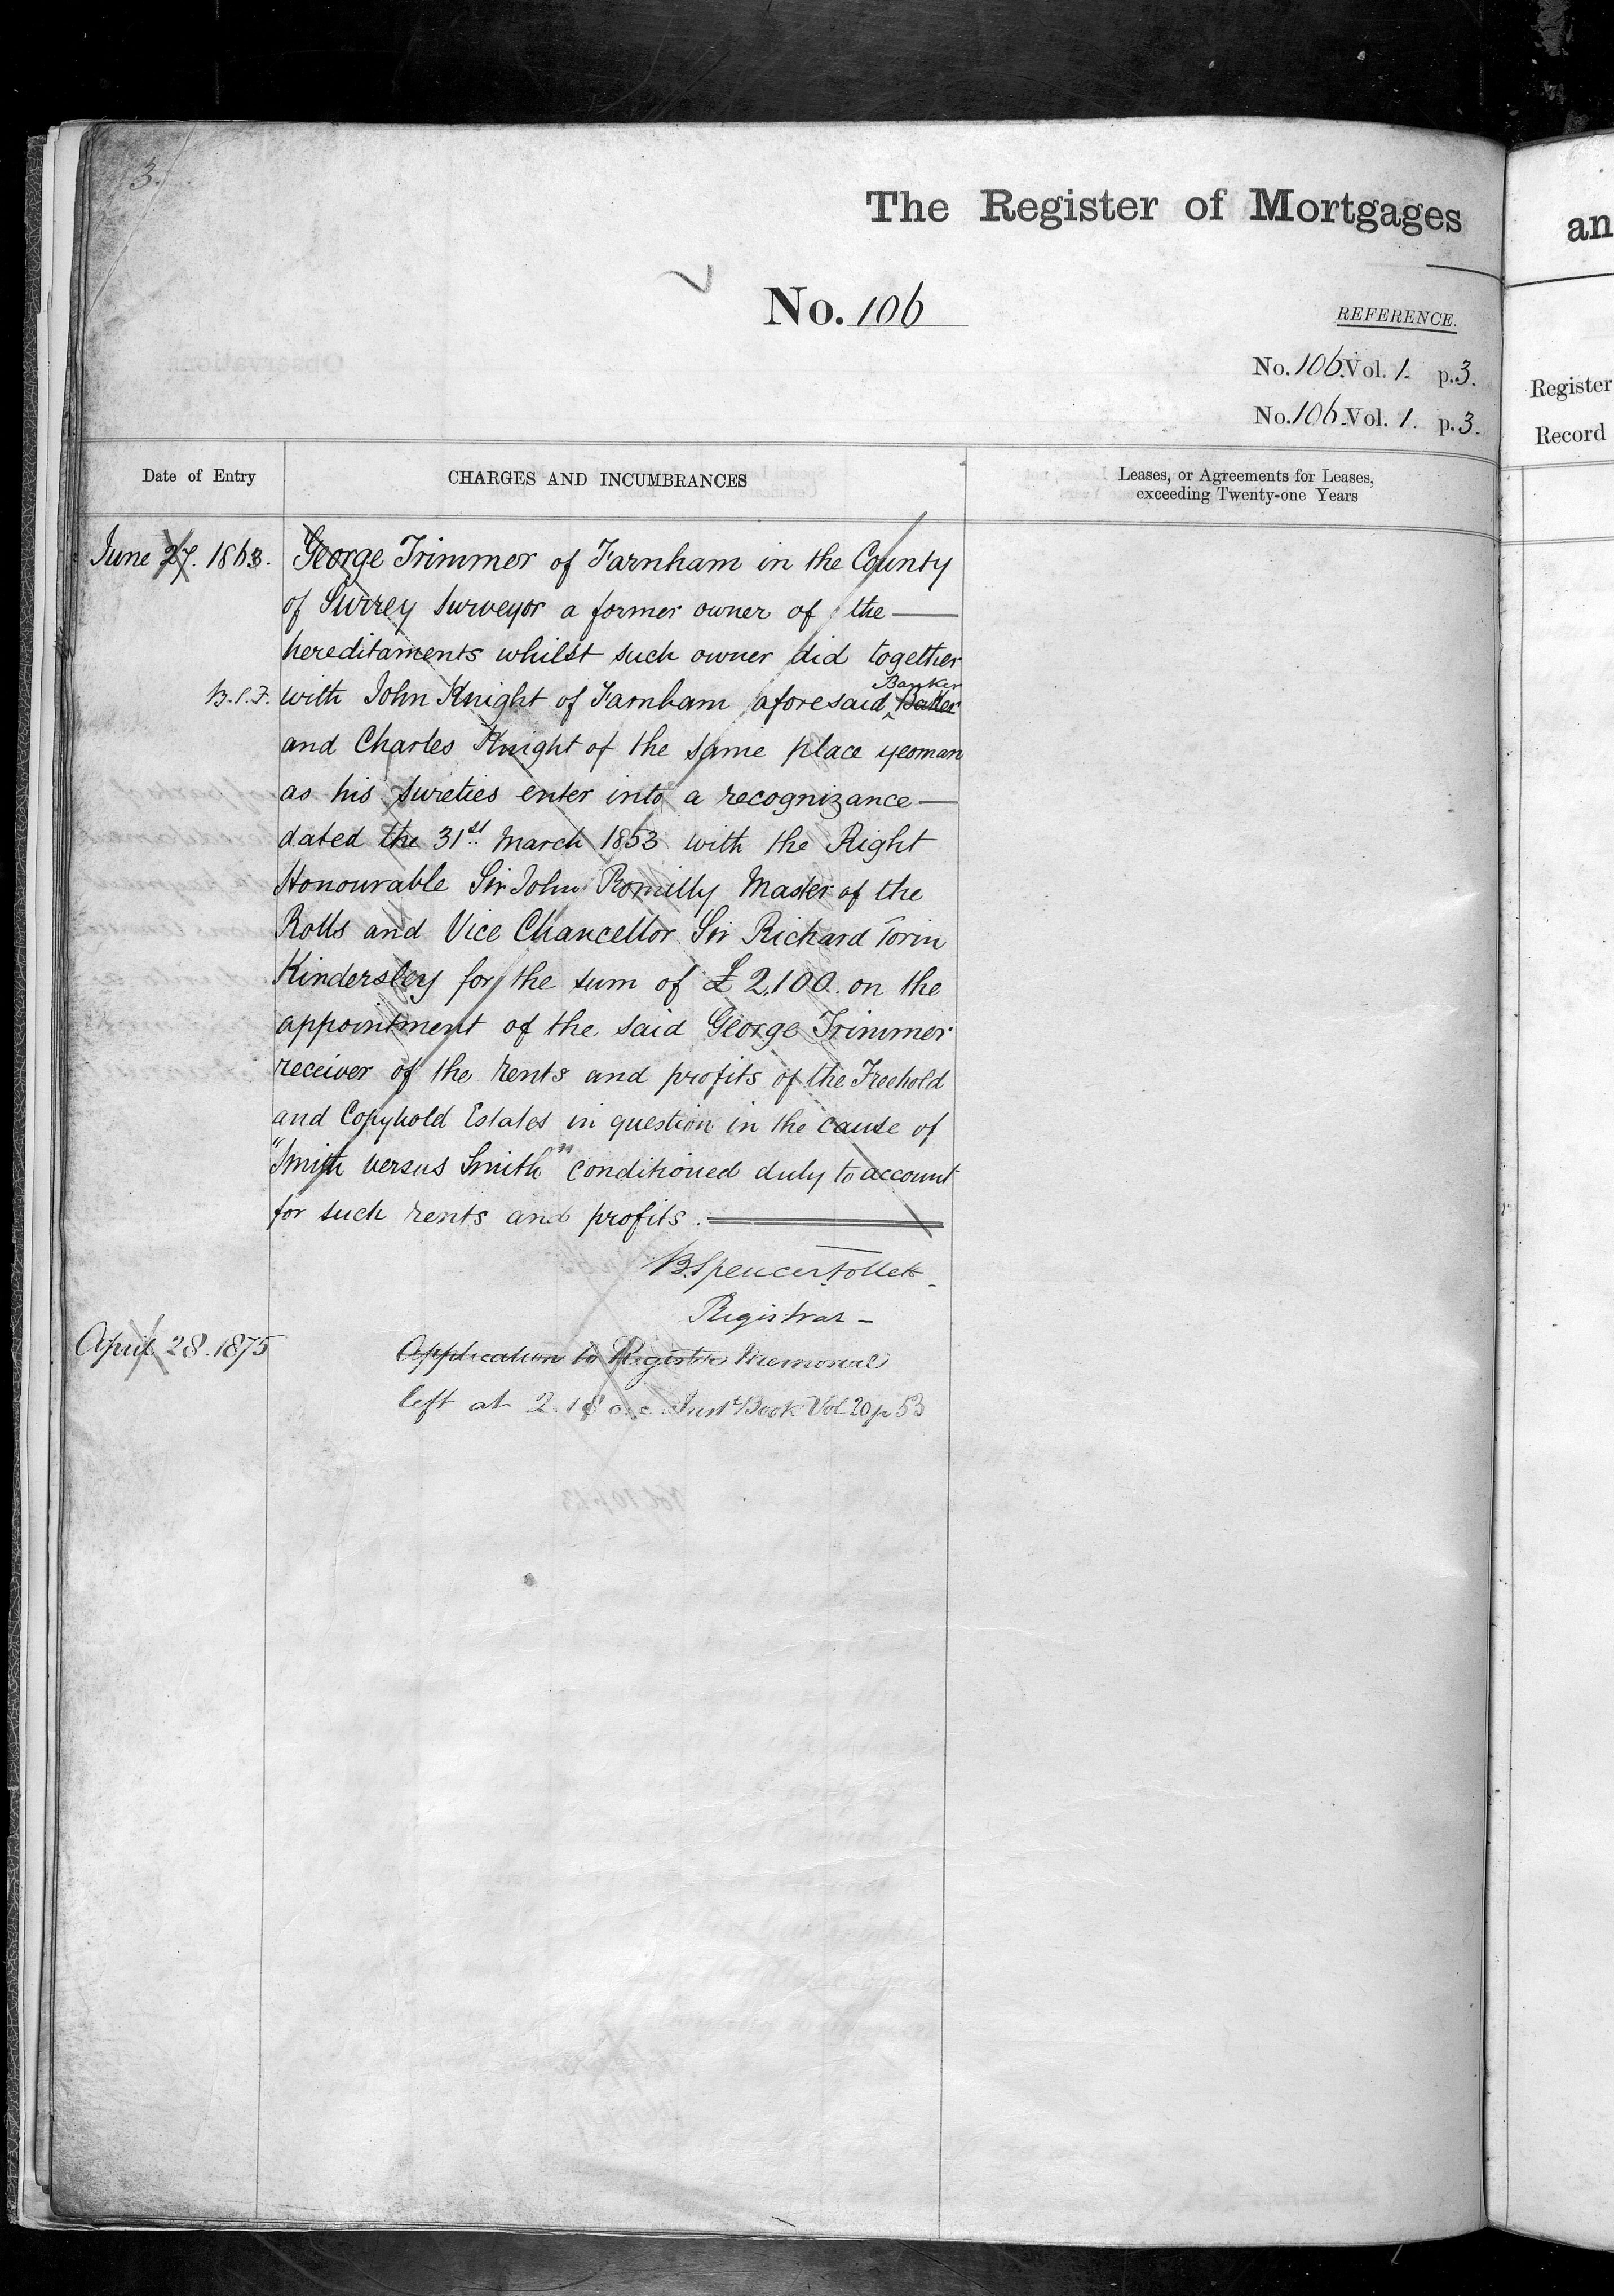 3.
The Register of Mortgages
an
No. 106
REFERENCE.
No. 106. Vol. 1. p. 3.
No. 106. Vol. 1. p. 3.
Register
Record
Date of Entry
CHARGES AND INCUMBRANCES
Leases, or Agreements for Leases,
exceeding Twenty-one Years
June 27. 1863. George Trimmer of Farnham in the County
of Surrey Surveyor a former owner of the —
hereditaments whilst such owner did together
Banker
B.S.F. with John Knight of Farnham aforesaid ‸ Baker
and Charles Knight of the same place yeoman
as his sureties enter into a recognizance —
dated the 31st March 1853 with the Right
Honourable Sir John Romilly Master of the
Rolls and Vice Chancellor Sir Richard Torin
Kindersley for the sum of £2,100 on the
appointment of the said George Trimmer
receiver of the rents and profits of the Freehold
and Copyhold Estates in question in the cause of
"Smith versus Smith" conditioned duly to account
for such rents and profits.
B. Spencer Follett
Registrar —
April 28. 1875 Application to Register Memorial
left at 2.18 o.c. Inst Book Vol 20 p 53